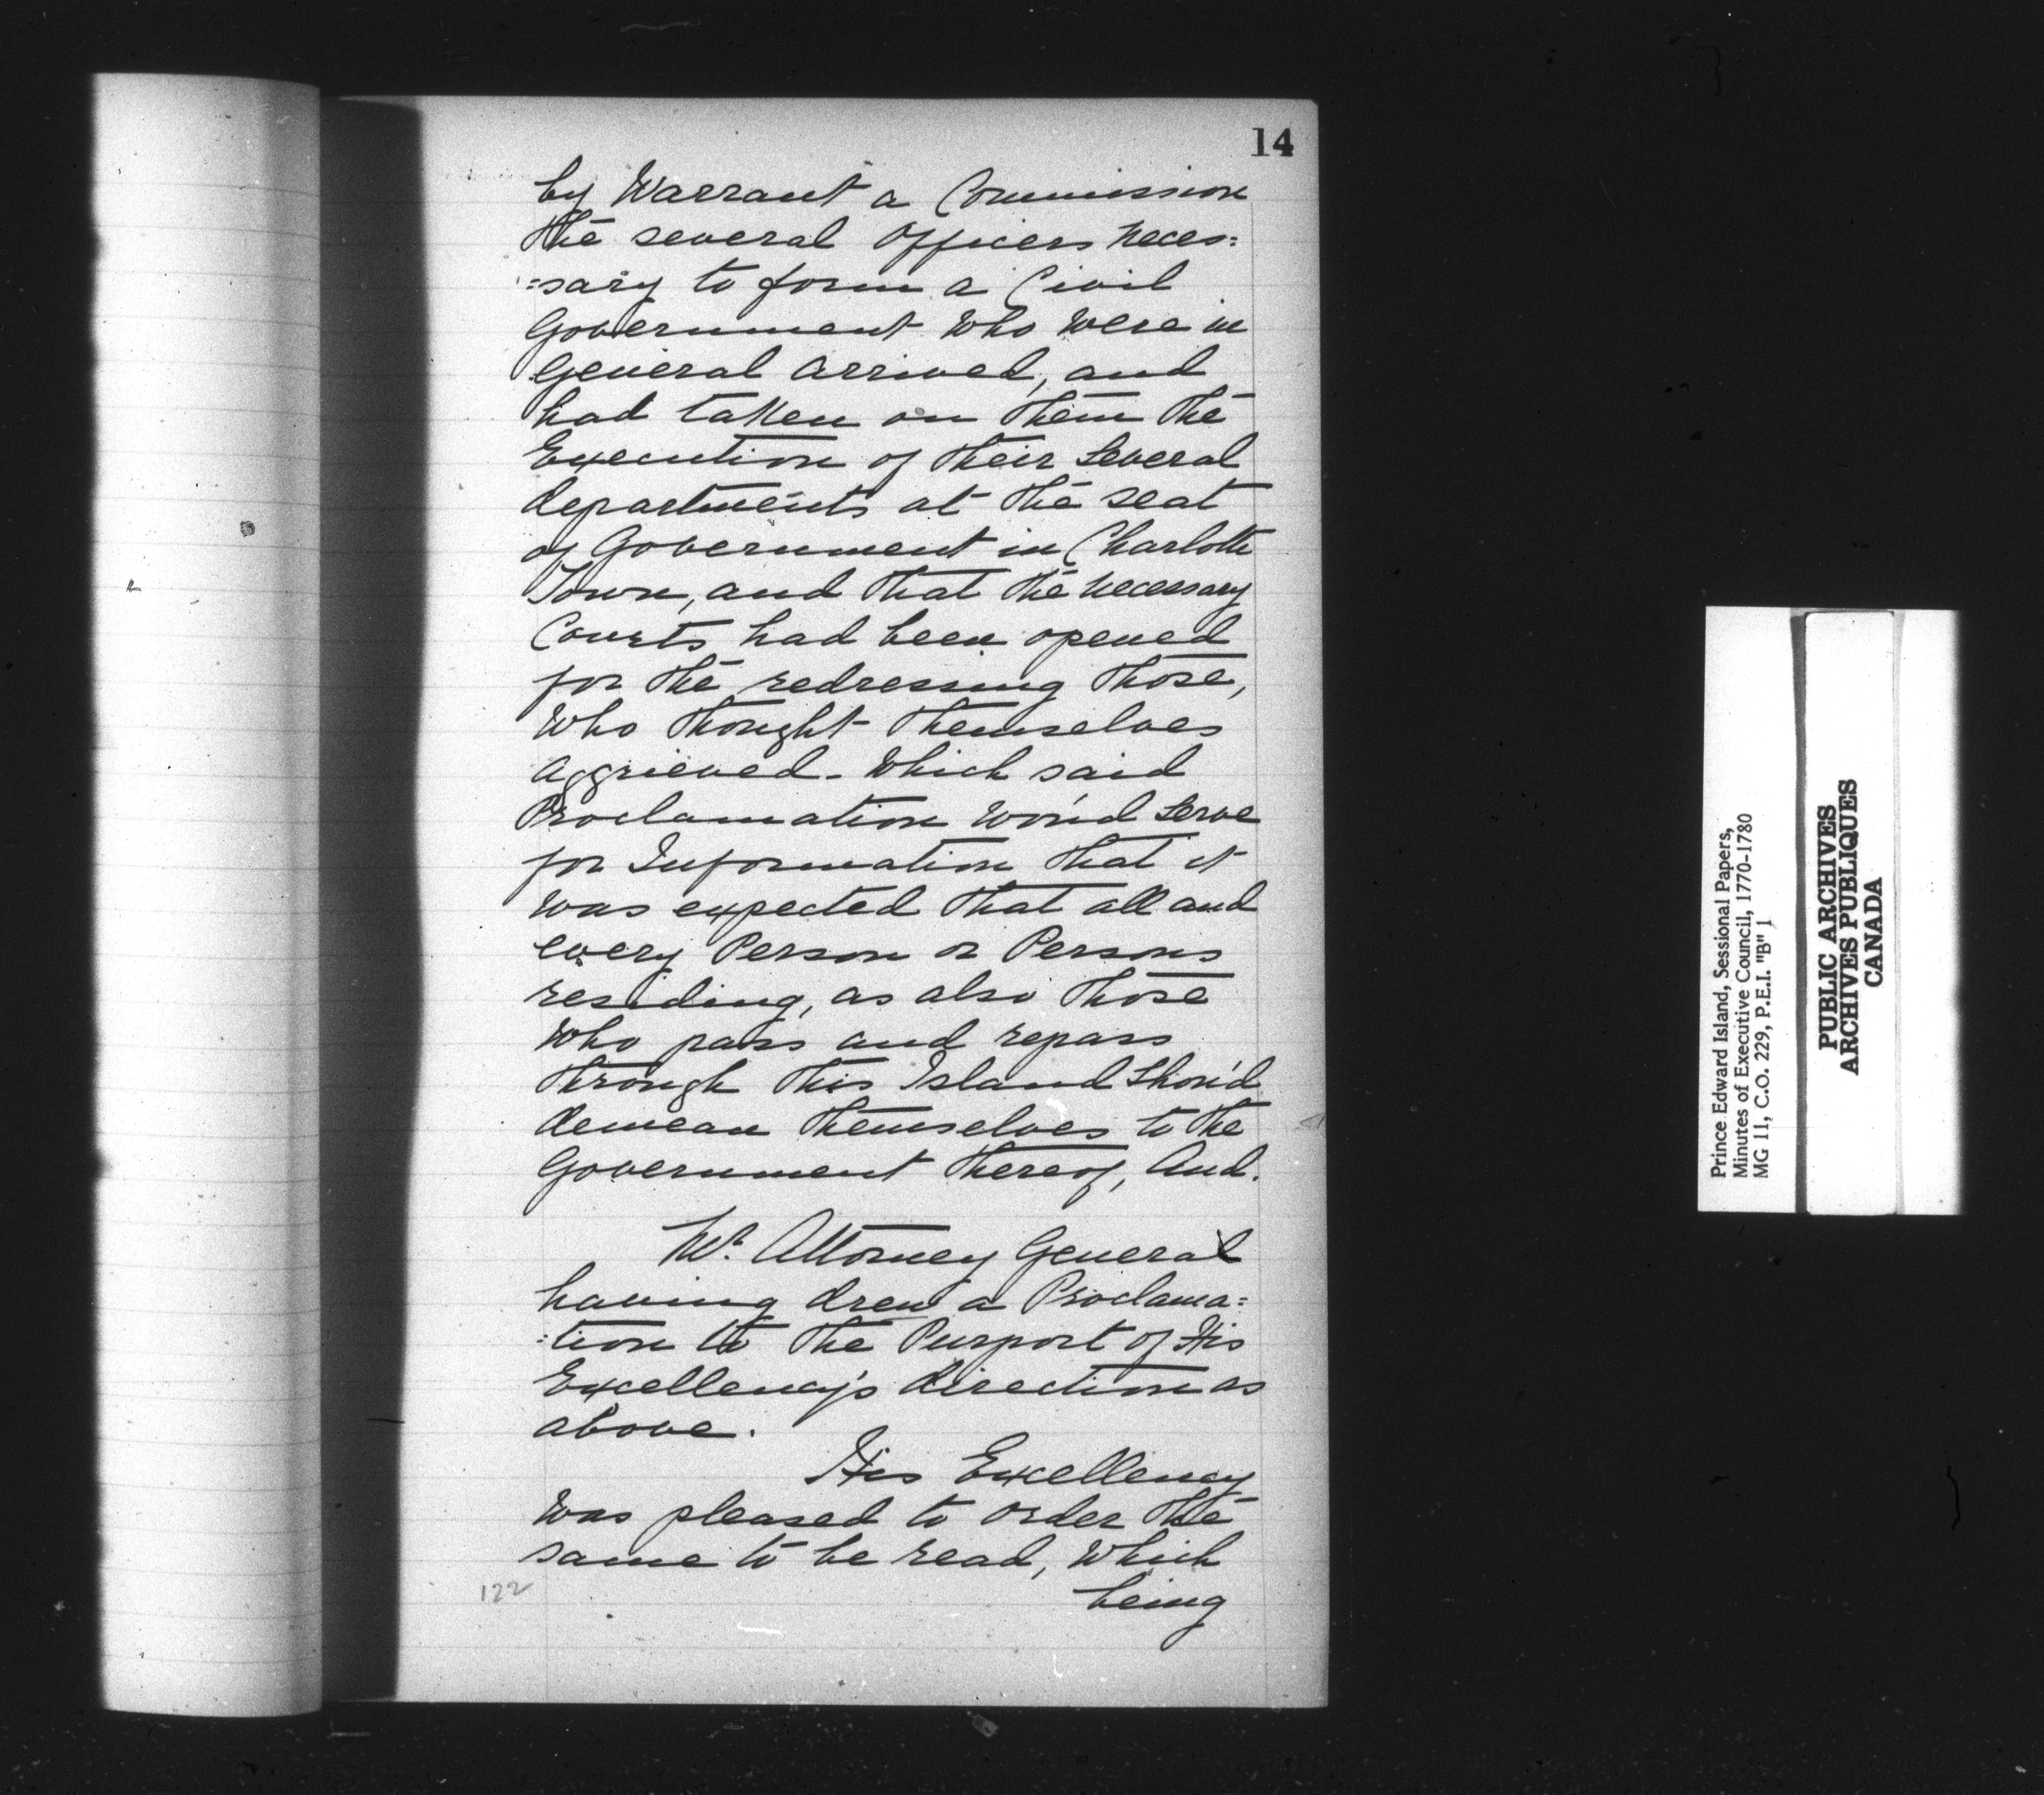 14
by Warrant a Commission
the several Officers neces=
=sary to form a Civil
Government who were in
General arrived, and
had taken on them the
Execution of their Several
departments at the seat
of Government in Charlotte
Town, and that the necessary
Courts had been opened
for the redressing those,
who thought themselves
aggrieved - Which said
Proclamation wou'd Serve
for Information that it
was expected that all and
every Person or Persons
residing, as also those
who pass and repass
through this Island Shou'd
demean themselves to the
Government thereof, And.
Mr. Attorney General
having drew a Proclama=
=tion to the Purport of His
Excellency's direction as
above.
His Excellency
was pleased to order the
same to be read, which
being
122
Prince Edward Island, Sessional Papers,
Minutes of Executive Council, 1770-1780
MG 11, C.O. 229, P.E.I. "B" 1
PUBLIC ARCHIVES
ARCHIVES PUBLIQUES
CANADA